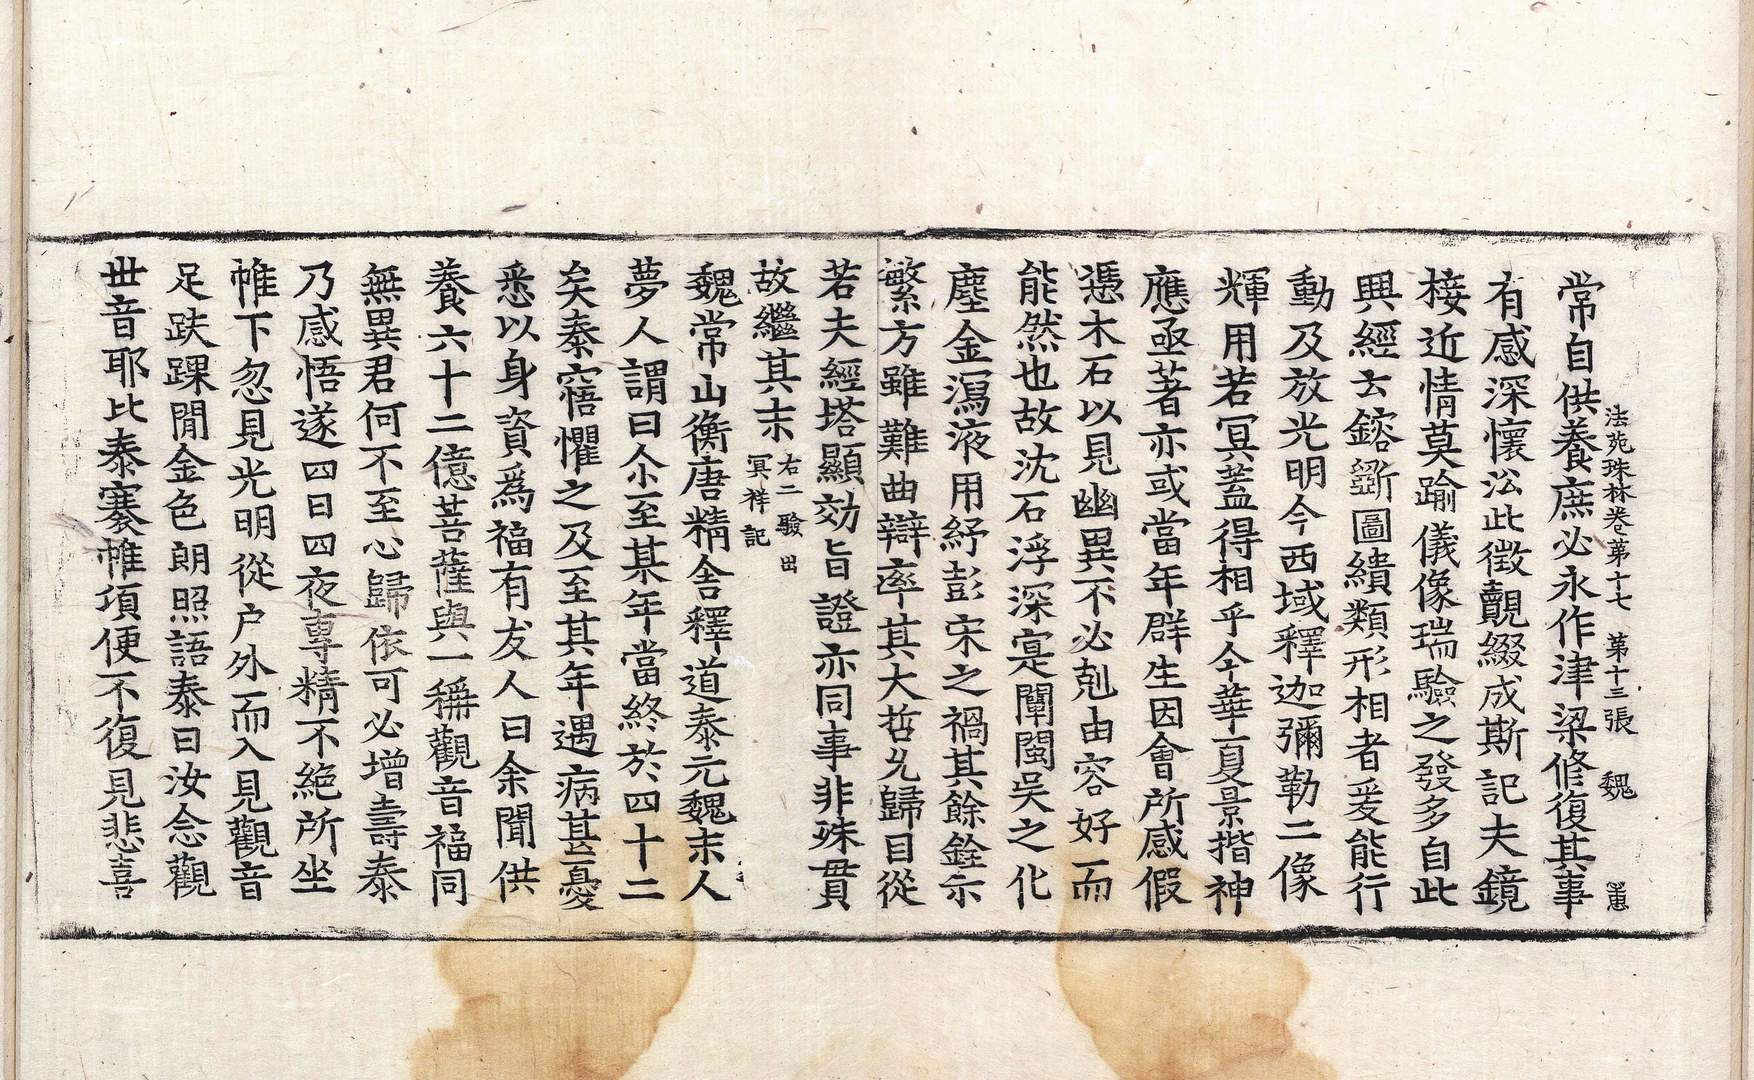 法苑珠林卷第十七 第十三張 魏
常自供養庶必永作津梁修復其事
有感深懷沿此徵覿綴成斯記夫鏡
椄近情莫踰儀像瑞驗之發多自此
興經云鎔斵圖繢類形相者爰能行
動及放光明今西域釋迦彌勒二像
輝用若冥蓋得相乎今華夏景揩神
應亟著亦或當年群生因會所感假
憑木石以見幽異不必剋由容好而
能然也故沈石浮深寔闡閩吳之化
塵金瀉液用紓彭宋之禍其餘銓示
繁方雖難曲辯率其大哲兊歸目從
若夫經塔顯効旨證亦同事非殊貫
故繼其末 右二驗出冥祥記
魏常山衡唐精舍釋道泰元魏末人
夢人謂曰尒至某年當終於四十二
矣泰寤懼之及至其年遇病甚憂
悉以身資爲福有友人曰余聞供
養六十二億菩薩與一稱觀音福同
無異君何不至心歸依可必增壽泰
乃感悟遂四日四夜專精不絶所坐
帷下忽見光明從户外而入見觀音
足趺踝間金色朗照語泰曰汝念觀
世音耶比泰褰帷項便不復見悲喜